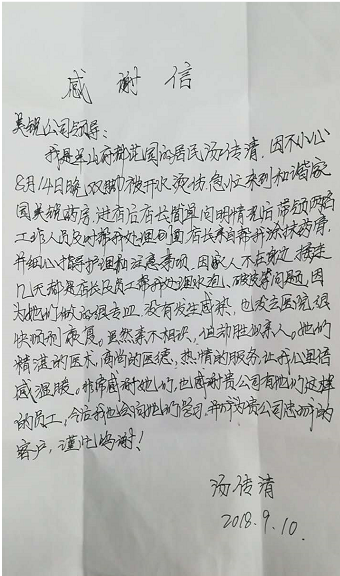 感谢信
英锐公司领导：
我是兰山府龄花园的居民汤传清，因不小心
8月14日晚双脚被开水烫伤，急忙来到和谐家
园英锐药房，进店后店长简单问明情况后带领两名
工作人员及时帮我处理创面店长亲自帮我涂抹药膏，
并细心指导护理和注意事项，因家人不在身边，接连
几天都是店长及员工帮我处理水泡、破皮等问题，因
为她们做的很专业，没有发生感染，也没去医院很
快顺利康复。虽然素不相识，但动胜似亲人。她们
精湛的医术，高尚的医德，热情的服务，让我心里倍
感温暖。非常感谢她们，也感谢贵公司有她们这样
的员工，今后我也会向她们学习，并成为贵公司忠诚的
客户，谨此鸣谢！
汤传清
2018.9.10.